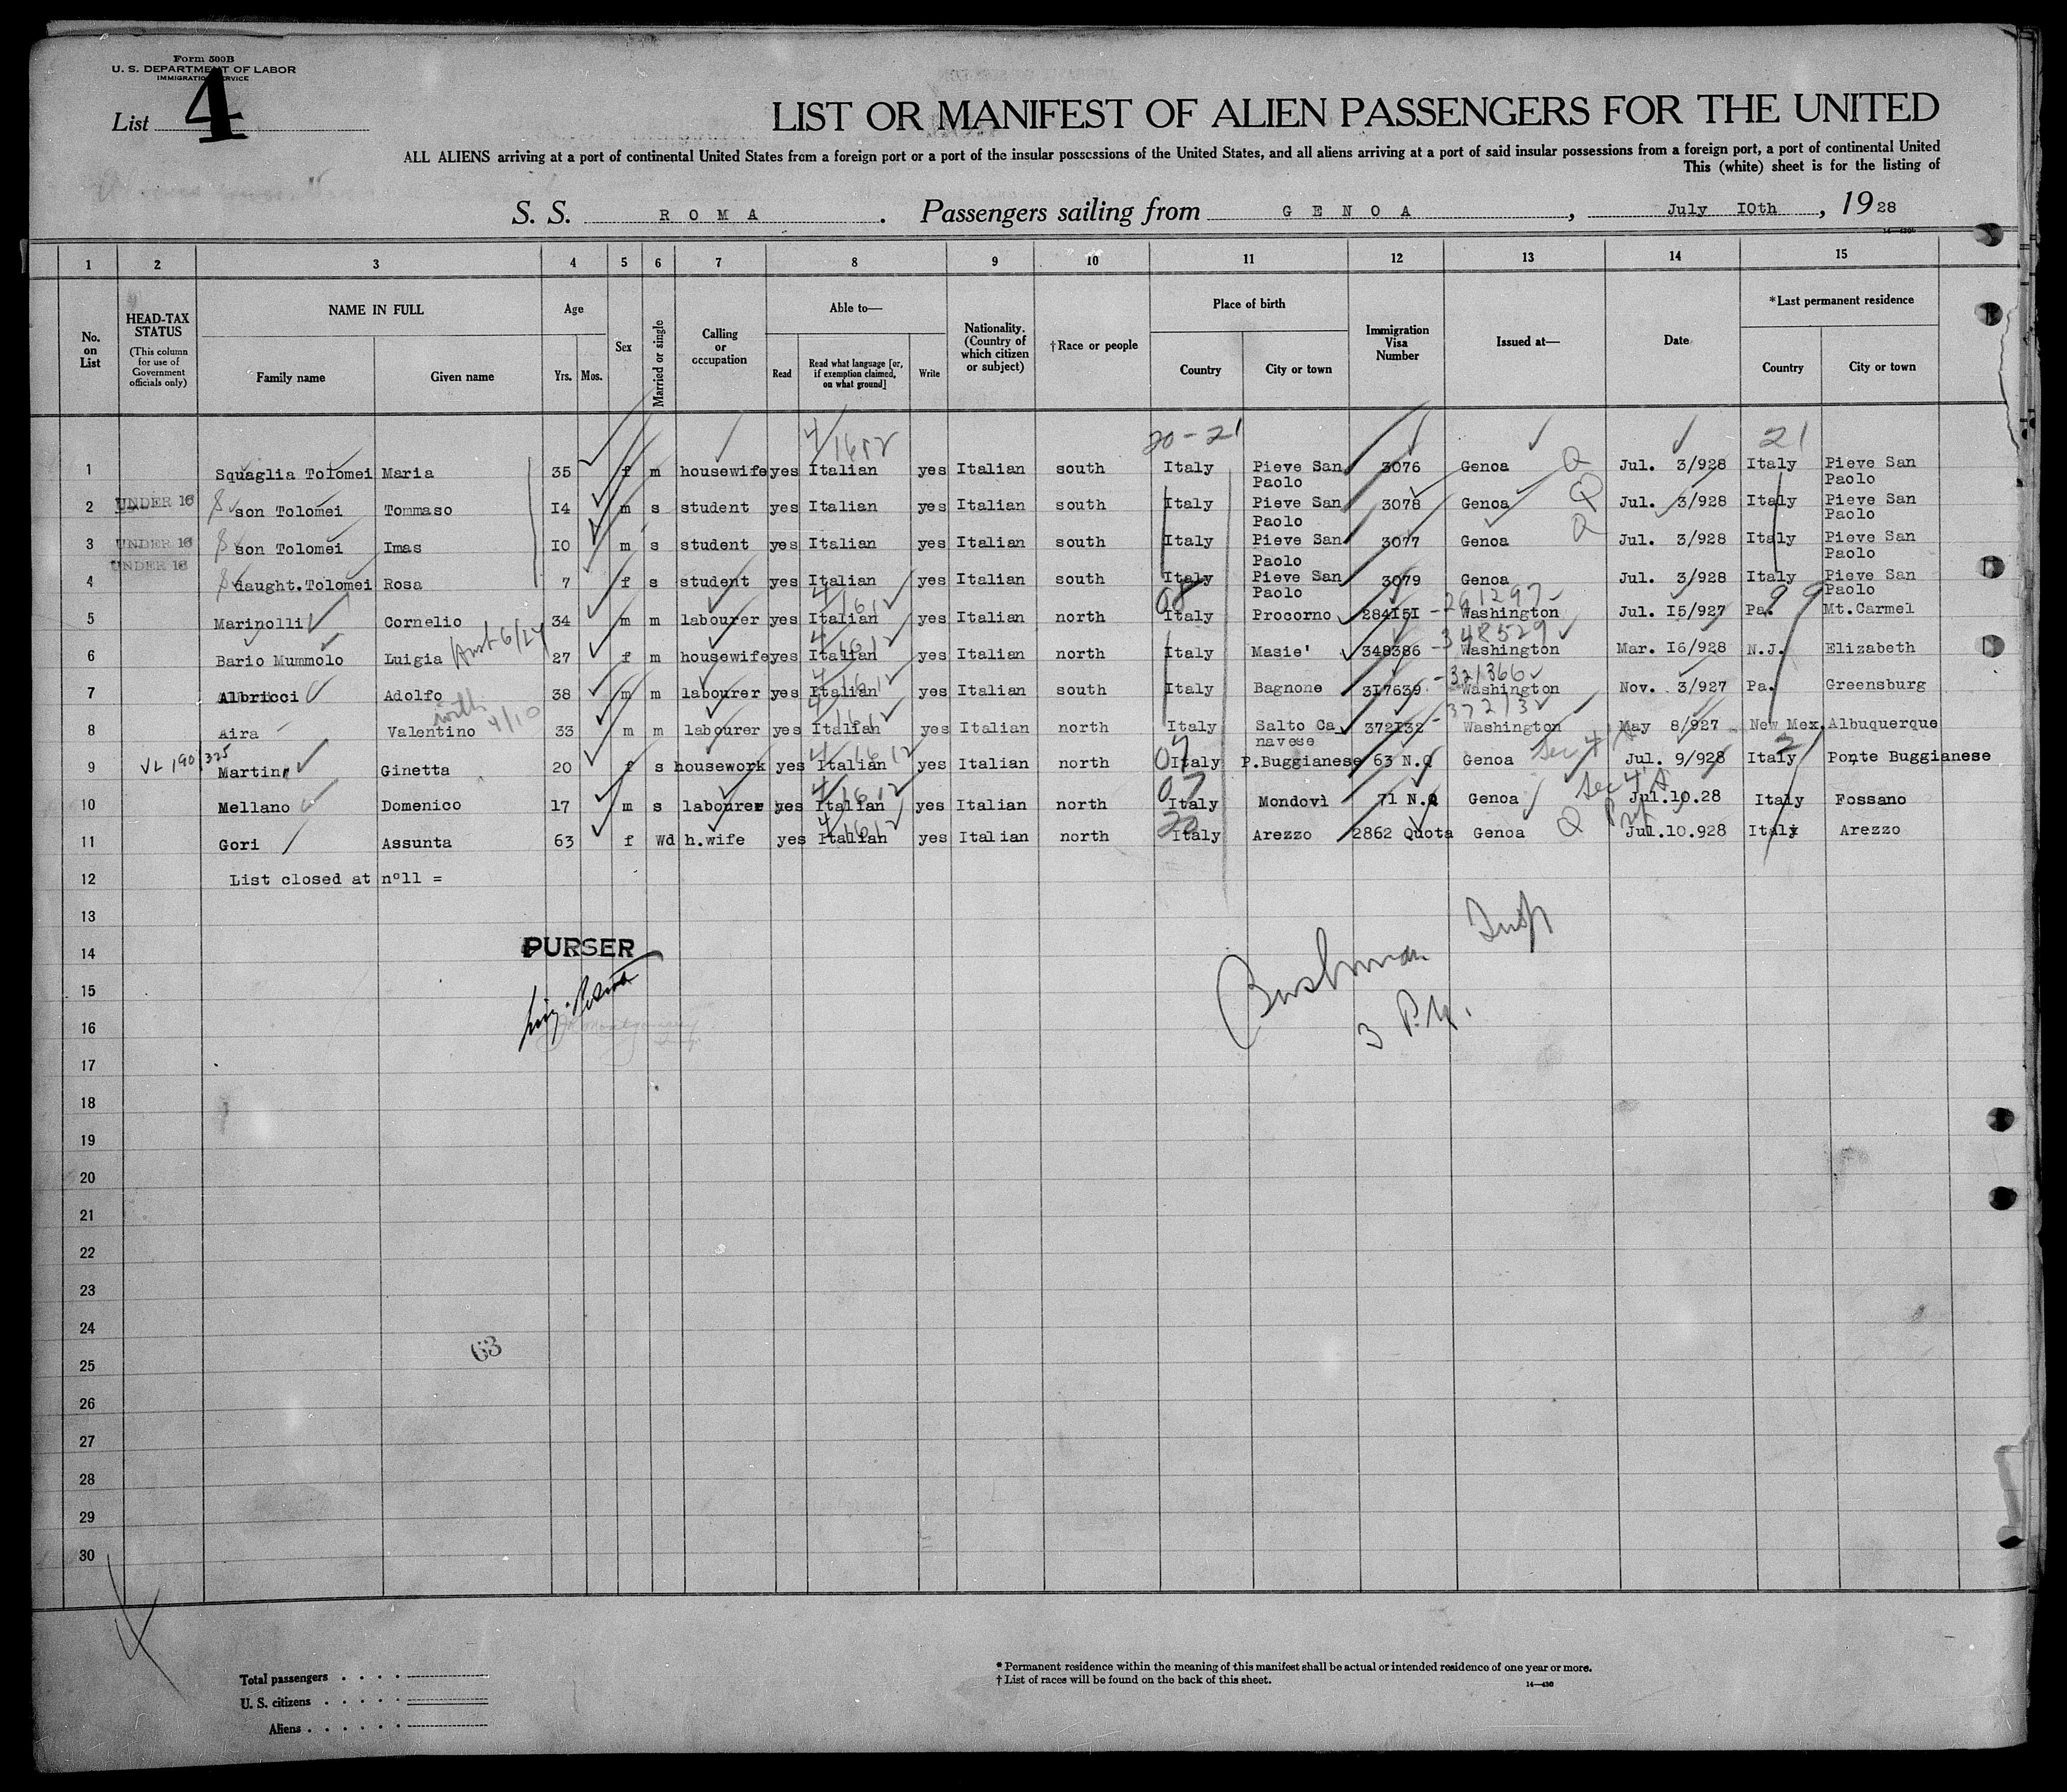 Form 500B
U. S. DEPARTMENT OF LABOR
IMMIGRATION SERVICE
List 4
LIST OR MANIFEST OF ALIEN PASSENGERS FOR THE UNITED
ALL ALIENS arriving at a port of continental United States from a foreign port or a port of the insular possessions of the United States, and all aliens arriving at a port of said insular possessions from a foreign port, a port of continental United
This (white) sheet is for the listing of
S. S. ROMA. Passengers sailing from GENOA, July I0th, 1928
1 2 3 4 5 6 7 8 9 10 11 12 13 14 15
No. on List
HEAD-TAX STATUS
(This column for use of Government officials only)
NAME IN FULL
Family name Given name
Age
Yrs. Mos.
Sex
Married or single
Calling or occupation
Able to—
Read Read what language [or, if exemption claimed, on what ground] Write
Nationality. (Country of which citizen or subject)
†Race or people
Place of birth
Country City or town
Immigration Visa Number
Issued at—
Date
*Last permanent residence
Country City or town
4/1612 20-21 21
1 Squaglia Tolomei Maria 35 f m housewife yes Italian yes Italian south Italy Pieve San Paolo 3076 Genoa Q Jul. 3/928 Italy Pieve San Paolo
2 UNDER 16 son Tolomei Tommaso I4 m s student yes Italian yes Italian south Italy Pieve San Paolo 3078 Genoa Q Jul. 3/928 Italy Pieve San Paolo
3 UNDER 16 son Tolomei Imas I0 m s student yes Italian yes Italian south Italy Pieve San Paolo 3077 Genoa Q Jul. 3/928 Italy Pieve San Paolo
4 UNDER 16 daught.Tolomei Rosa 7 f s student yes Italian yes Italian south Italy Pieve San Paolo 3079 Genoa Jul. 3/928 Italy Pieve San Paolo
5 Marinolli Cornelio 34 m m labourer yes Italian yes Italian north Italy Procorno 284I5I -261297- Washington Jul. I5/927 Pa. Mt.Carmel
6 Bario Mummolo Luigia 27 f m housewife yes Italian yes Italian north Italy Masie' 348386 -348529 Washington Mar. I6/928 N.J. Elizabeth
7 Albricci Adolfo 38 m m labourer yes Italian yes Italian south Italy Bagnone 3I7639 -321366 Washington Nov. 3/927 Pa. Greensburg
8 Aira Valentino with 4/10 33 m m labourer yes Italian yes Italian north Italy Salto Ca navese 372I32 -372132 Washington May 8/927 New Mex. Albuquerque
9 VL 190/325 Martin Ginetta 20 f s housework yes Italian yes Italian north Italy P.Buggianese 63 N.Q Genoa Sec 4 A Jul. 9/928 Italy Ponte Buggianese
10 Mellano Domenico 17 m s labourer yes Italian yes Italian north Italy Mondovì 71 N.Q Genoa Sec 4 A Jul.10.28 Italy Fossano
11 Gori Assunta 63 f Wd h.wife yes Italian yes Italian north Italy Arezzo 2862 Quota Genoa Q Pref Jul.10.928 Italy Arezzo
12 List closed at n°11 =
13
14 PURSER
Bushman Insp
15
16 3 P.M.
17
18
19
20
21
22
23
24
25 63
26
27
28
29
30
Total passengers
U. S. citizens
Aliens
* Permanent residence within the meaning of this manifest shall be actual or intended residence of one year or more.
† List of races will be found on the back of this sheet.
14—430